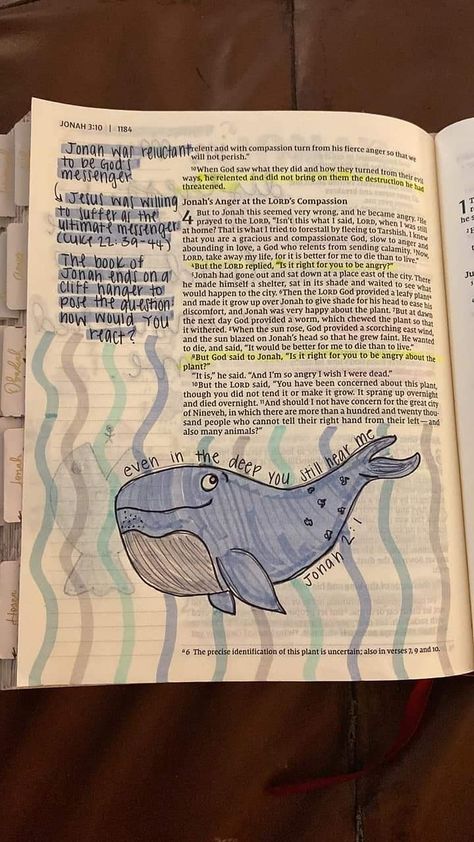 JONAH 3:10 | 1184
Jonah was reluctant
to be God's
messenger
↳ Jesus was willing
to suffer as the
ultimate messenger
(Luke 22:39-44)
The book of
Jonah ends on a
cliff hanger to
pose the question:
how would you
react?
relent and with compassion turn from his fierce anger so that we
will not perish."
10 When God saw what they did and how they turned from their evil
ways, he relented and did not bring on them the destruction he had
threatened.
Jonah's Anger at the LORD's Compassion
4 But to Jonah this seemed very wrong, and he became angry. 2 He
prayed to the LORD, "Isn't this what I said, LORD, when I was still
at home? That is what I tried to forestall by fleeing to Tarshish. I knew
that you are a gracious and compassionate God, slow to anger and
abounding in love, a God who relents from sending calamity. 3 Now,
LORD, take away my life, for it is better for me to die than to live."
4 But the LORD replied, "Is it right for you to be angry?"
5 Jonah had gone out and sat down at a place east of the city. There
he made himself a shelter, sat in its shade and waited to see what
would happen to the city. 6 Then the LORD God provided a leafy plant a
and made it grow up over Jonah to give shade for his head to ease his
discomfort, and Jonah was very happy about the plant. 7 But at dawn
the next day God provided a worm, which chewed the plant so that
it withered. 8 When the sun rose, God provided a scorching east wind,
and the sun blazed on Jonah's head so that he grew faint. He wanted
to die, and said, "It would be better for me to die than to live."
9 But God said to Jonah, "Is it right for you to be angry about the
plant?"
"It is," he said. "And I'm so angry I wish I were dead."
10 But the LORD said, "You have been concerned about this plant,
though you did not tend it or make it grow. It sprang up overnight
and died overnight. 11 And should I not have concern for the great city
of Nineveh, in which there are more than a hundred and twenty thou-
sand people who cannot tell their right hand from their left—and
also many animals?"
even in the deep you still hear me
Jonah 2:1
a 6 The precise identification of this plant is uncertain; also in verses 7, 9 and 10.
Obadiah
Jonah
Hosea